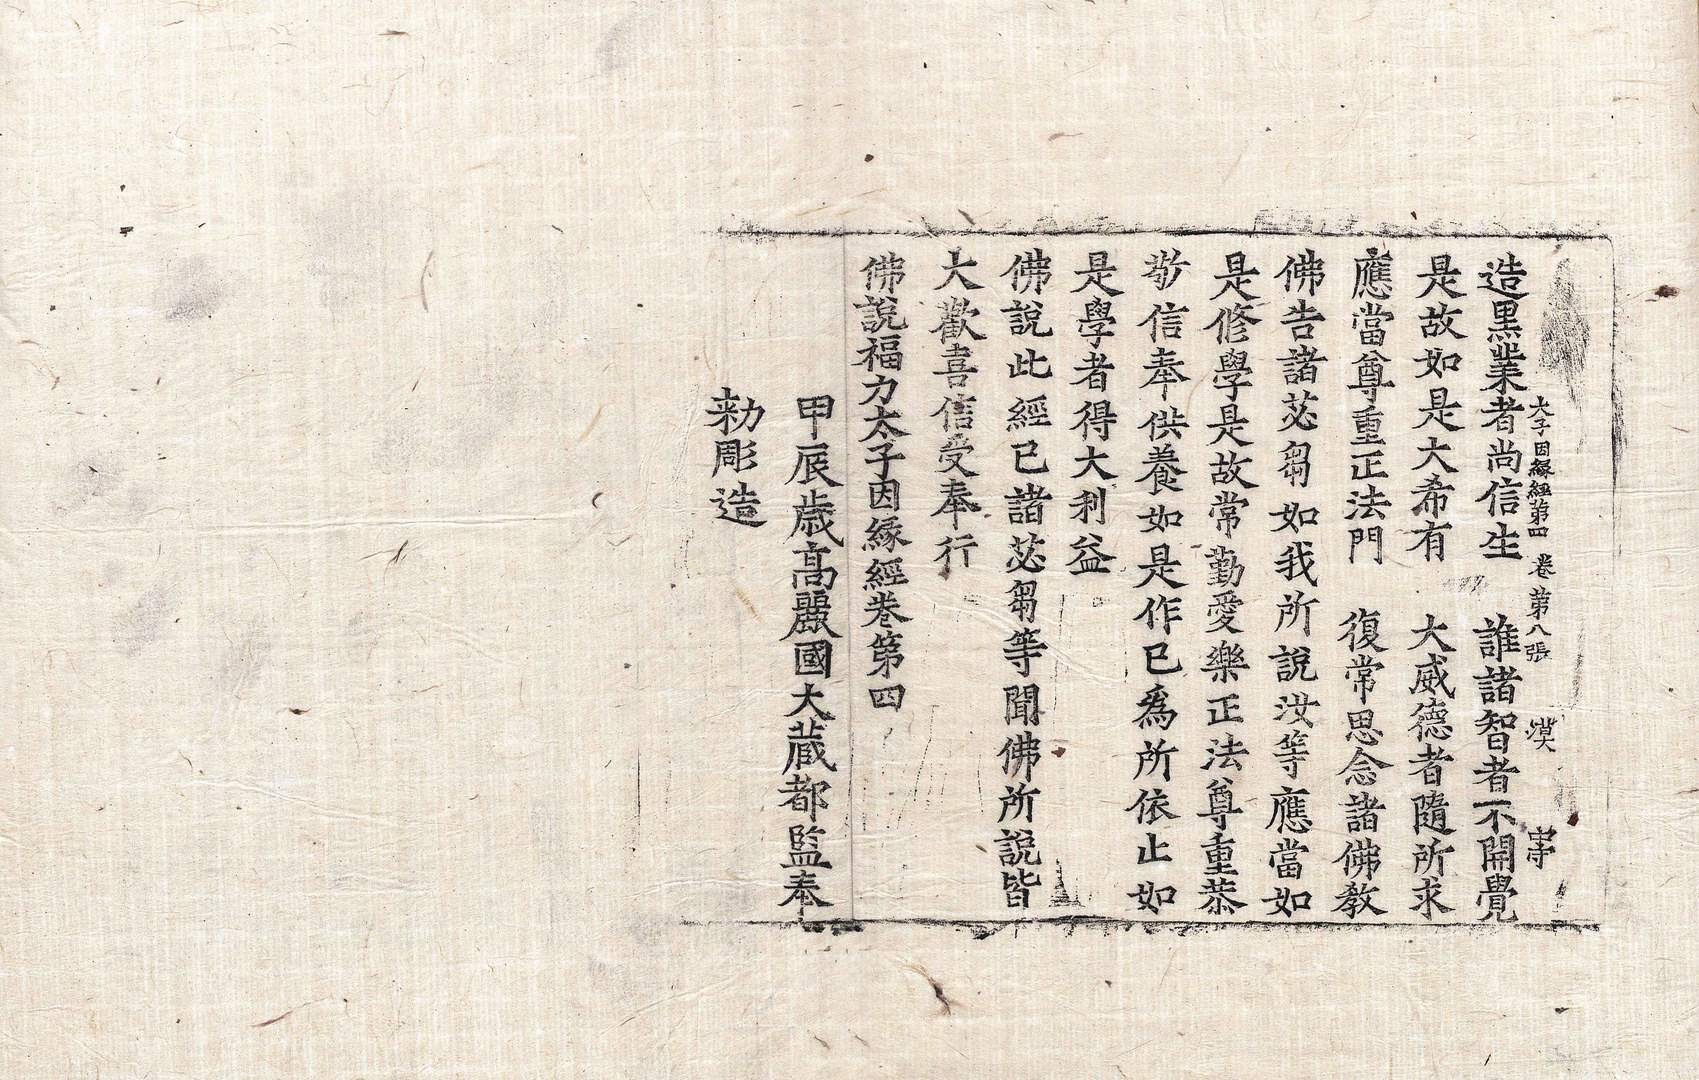 太子因緣經第四 卷 第八張 漠
造黑業者尚信生 誰諸智者不開覺
是故如是大希有 大威德者隨所求
應當尊重正法門 復常思念諸佛教
佛告諸苾芻如我所說汝等應當如
是修學是故常勤愛樂正法尊重恭
敬信奉供養如是作已為所依止如
是學者得大利益
佛說此經已諸苾芻等聞佛所說皆
大歡喜信受奉行
佛說福力太子因緣經卷第四
甲辰歲高麗國大藏都監奉
勑彫造